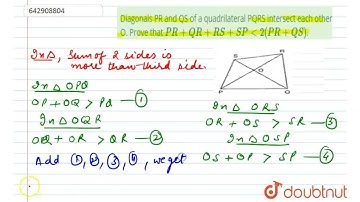 642908804
Diagonals PR and QS of a quadrilateral PQRS intersect each other
O. Prove that PR + QR + RS + SP < 2(PR + QS).
In Δ, Sum of 2 sides is
more than third side.
In Δ OPQ
OP + OQ > PQ — ①
In Δ OQR
OQ + OR > QR — ②
In Δ ORS
OR + OS > SR — ③
In Δ OSP
OS + OP > SP — ④
Add ①, ②, ③, ④, we get
doubtnut